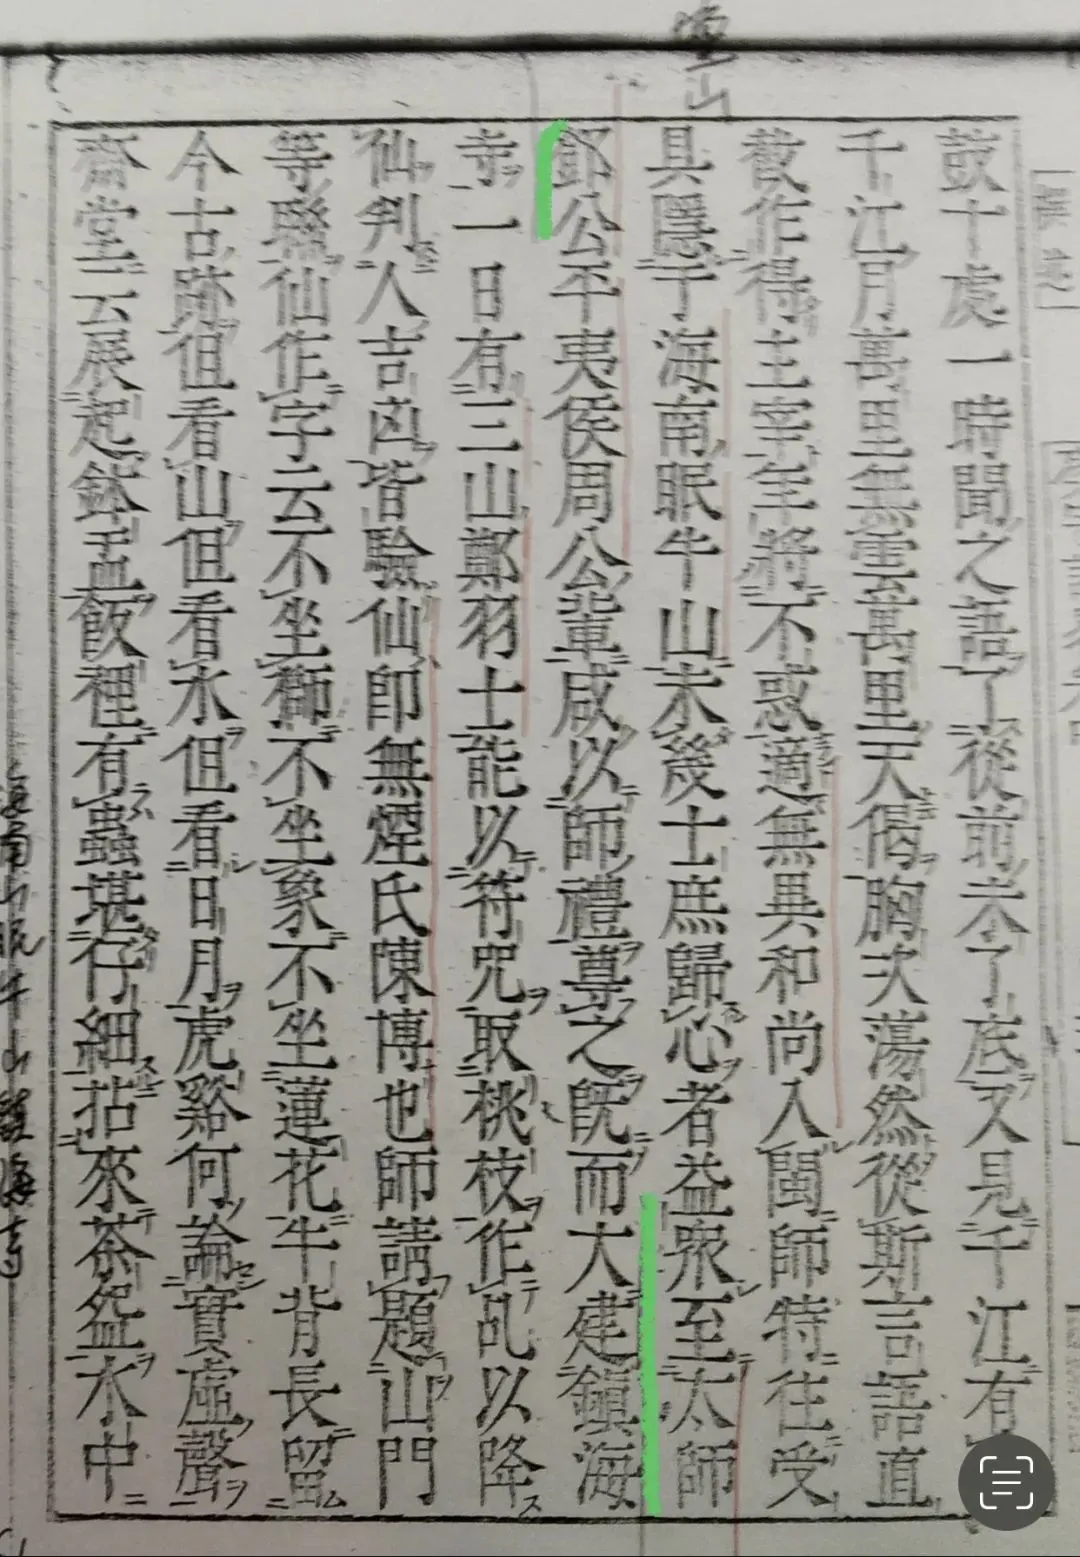 鼓十處一時聞之語了從前未了底又見千江有
千江月萬里無雲萬里天偈胸次蕩然從斯言語直
截作得主宰年將不惑適無具和尚入閩師特往受
具隱于海南眠牛山未幾士庶歸心者益眾至太師
鄧公平夷侯周公輩咸以師禮尊之既而大建鎮海
寺一日有三山鄭羽士能以符咒取桃枝作乩以降
仙判人吉凶皆驗仙即無煙氏陳博也師請題山門
等聯仙作字云不坐獅不坐象不坐蓮花牛背長留
今古跡但看山但看水但看日月虎谿何論實虛聲
齋堂云展起鉢盂飯裡有蟲堪仔細拈來茶盌水中